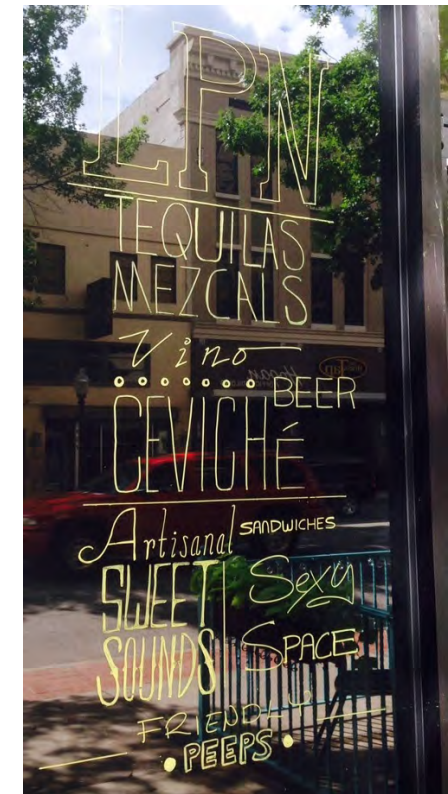 LPN
TEQUILAS
MEZCALS
Vino
BEER
CEVICHÉ
Artisanal SANDWICHES
SWEET SOUNDS
Sexy SPACE
FRIENDLY
PEEPS